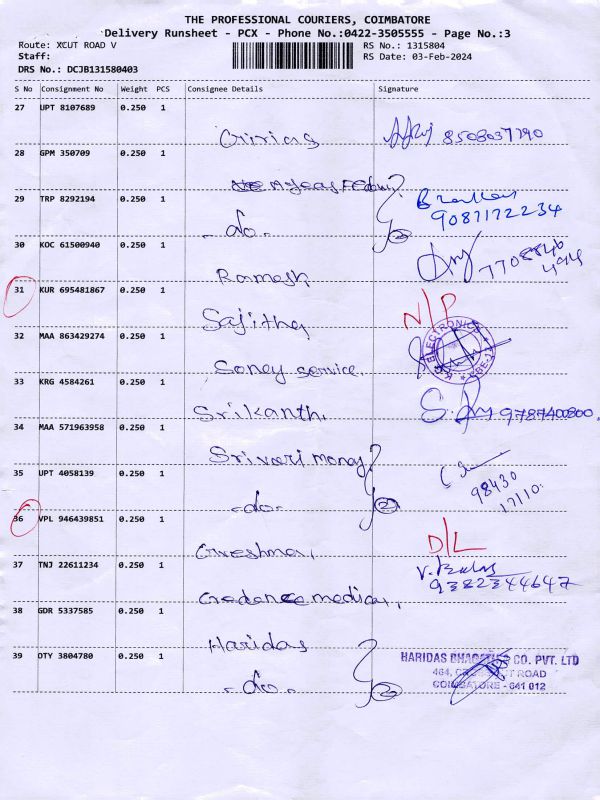 THE PROFESSIONAL COURIERS, COIMBATORE
Delivery Runsheet - PCX - Phone No.:0422-3505555 - Page No.:3
Route: XCUT ROAD V
RS No.: 1315804
Staff:
RS Date: 03-Feb-2024
DRS No.: DCJB131580403
S No Consignment No Weight PCS Consignee Details Signature
27 UPT 8107689 0.250 1
8508037790
28 GPM 350709 0.250 1
29 TRP 8292194 0.250 1
9087172234
- do -
30 KOC 61500940 0.250 1
Ramesh
7708846
494
31 KUR 695481867 0.250 1
N/P
Sajitha
32 MAA 863429274 0.250 1
Soney service.
33 KRG 4584261 0.250 1
Srikanth. 9787400800.
34 MAA 571963958 0.250 1
Srivari money
35 UPT 4058139 0.250 1
98430
17110
- do - 2
36 VPL 946439851 0.250 1
D/L
37 TNJ 22611234 0.250 1
9382344647
Credence medical,
38 GDR 5337585 0.250 1
Haridas
39 OTY 3804780 0.250 1
HARIDAS BHAGATH CO. PVT. LTD
464, ROAD
COIMBATORE - 641 012
- do - 2